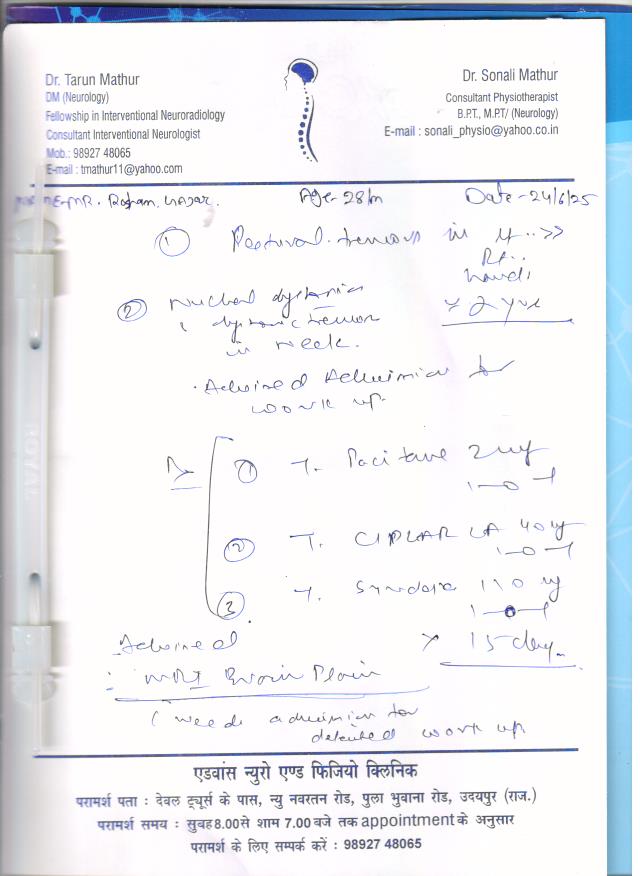 Dr. Tarun Mathur
DM (Neurology)
Fellowship in Interventional Neuroradiology
Consultant Interventional Neurologist
Mob.: 98927 48065
E-mail : tmathur11@yahoo.com
Dr. Sonali Mathur
Consultant Physiotherapist
B.P.T., M.P.T/ (Neurology)
E-mail : sonali_physio@yahoo.co.in
MR.
Age-28/m
Date-24/6/25
① Postural tremors in
Rt.
hand
x 2 yrs
② Nuchal dystonia
dystonic tremor
in neck.
Advised Admission for
work up
① T. Pacitane 2 mg
1-0-1
② T. CIPLAR LA 40 mg
1-0-1
③ T. 110 mg
1-0-1
x 15 day
Advised
: MRI Brain Plain
( needs admission for
detailed work up
एडवांस न्युरो एण्ड फिजियो क्लिनिक
परामर्श पता : देवल ट्यूर्स के पास, न्यु नवरतन रोड, पुला भुवाना रोड, उदयपुर (राज.)
परामर्श समय : सुबह 8.00 से शाम 7.00 बजे तक appointment के अनुसार
परामर्श के लिए सम्पर्क करें : 98927 48065
ROYAL